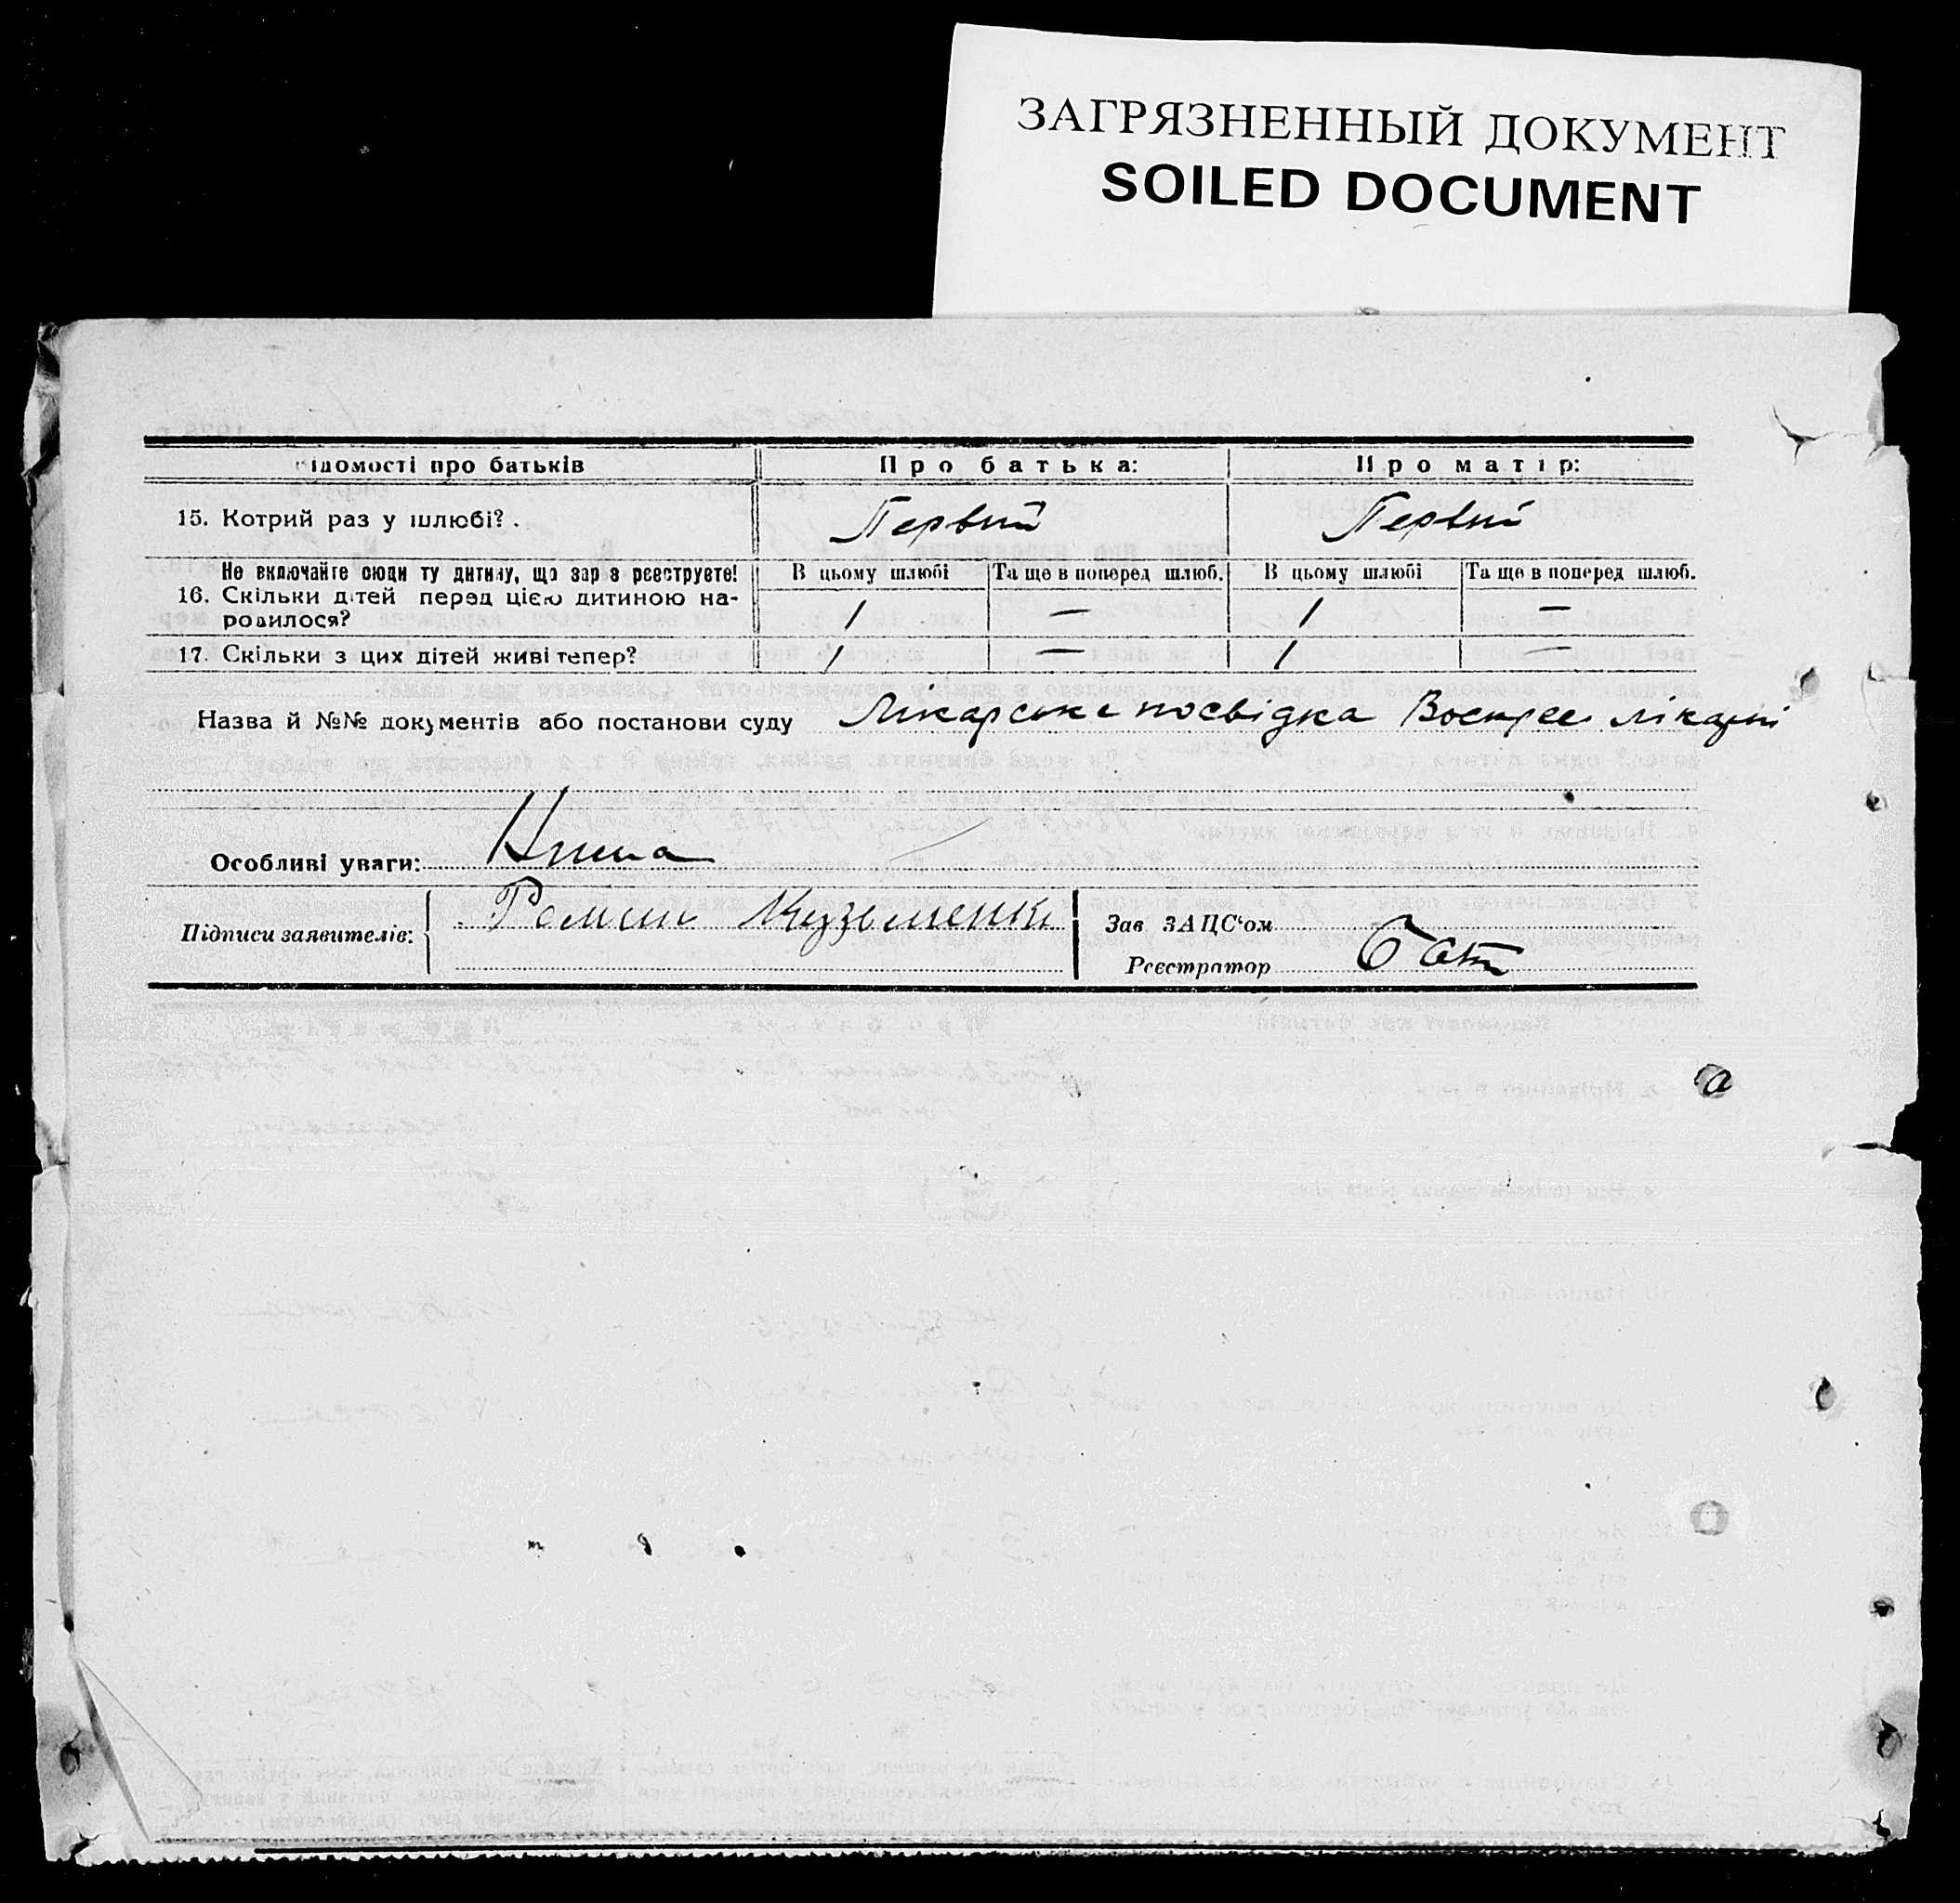 ЗАГРЯЗНЕННЫЙ ДОКУМЕНТ
SOILED DOCUMENT
ідомості про батьків
Про батька:
Про матір:
15. Котрий раз у шлюбі?.
Первий
Первий
Не включайте сюди ту дитину, що зар з реєструєте!
16. Скільки дітей перед цією дитиною на-
родилося?
В цьому шлюбі
Та ще в поперед шлюб.
В цьому шлюбі
Та ще в поперед шлюб.
1
—
1
—
17. Скільки з цих дітей живі тепер?
1
—
1
—
Назва й №№ документів або постанови суду Лікарська посвідка Воскрес лікарні
Особливі уваги:
Підписи заявителів:
Роман Кузьменко
Зав ЗАЦС'ом
Реєстратор